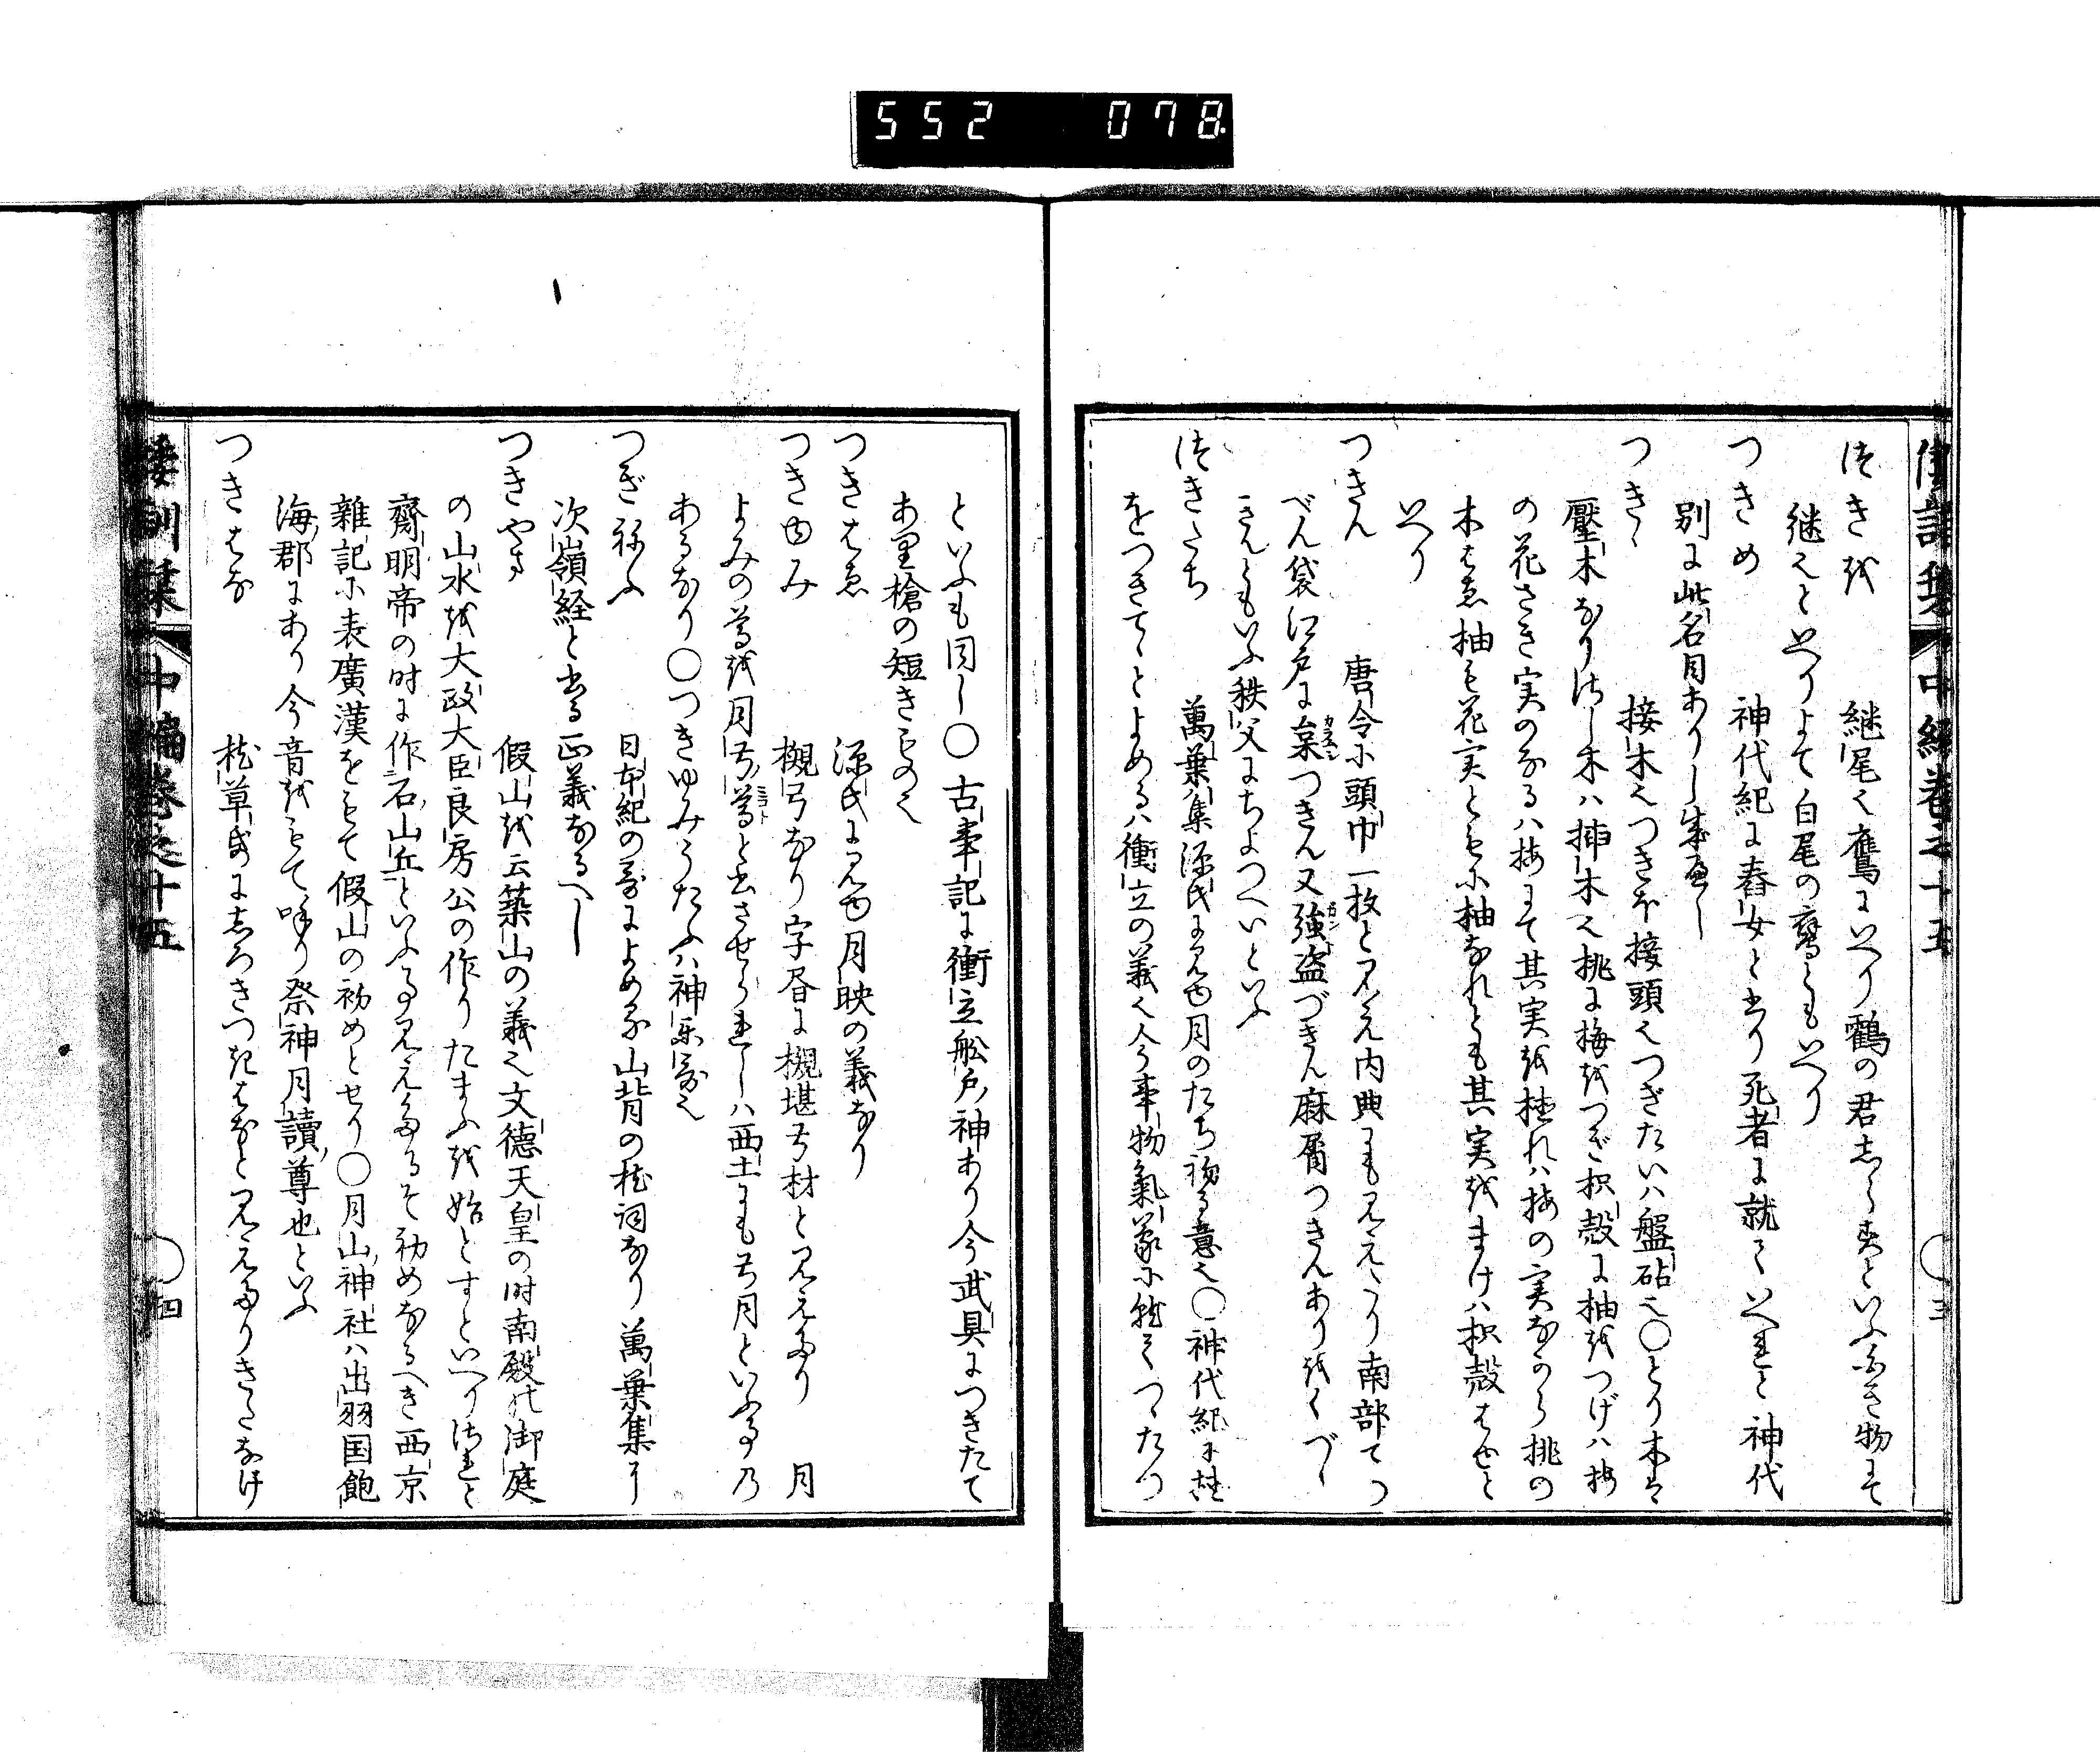 552 078
倭訓栞 中編巻之十五 ○三
つぎを 継尾也鷹にいへり鶴の君しらずといふふき物にて
継也といへりよて白尾の鷹ともいへり
つきめ 神代紀に舂女と書り死者に就ていへれと神代
別に此名目ありし成へし
つぎゝ 接木也つぎほ接頭也つぎたいハ盤砧也○とり木は
壓木なりさし木ハ挿木也桃に梅をつぎ枳殻に柚をつげハ梅
の花さき実のなるハ梅にて其実を植れハ梅の実なから桃の
木はゑ柚も花実ともに柚なれとも其実をまけハ枳殻はゆと
いへり
つきん 唐令に頭巾一枚と見え内典にも見えたり南部てつ
べん袋江戸に某つきん又強盗づきん麻屑つきんありをくづゝ
きんともいふ秩父にちよつへいといふ
つきたち 萬葉集源氏に見ゆ月のたち初る意也○神代紀に植
をつきたてとよめるハ衝立の義也今事物氣象に就てつつたつ
といふも同し○古事記に衝立舩戸ノ神あり今武具につきたて
あり槍の短きもの也
つきはゑ 源氏に見ゆ月映の義なり
つきゆみ 槻弓なり字昏に槻堪弓材と見えたり 月
よみの尊を月弓ノ尊と書させられしハ西土にも弓月といふ事乃
あるなり○つきゆみうたふハ神楽哥也
つぎねふ 日本紀の哥によめる山背の枕詞なり萬葉集に
次嶺経と書る正義なるへし
つきやま 假山を云築山の義也文徳天皇の時南殿の御庭
の山水を大政大臣良房公の作りたまふを始とすといへりされと
齋明帝の时に作石ノ山丘といふ事見えたるそ初めなるへき西京
雜記に表廣漢をもて假山の初めとせり○月山ノ神社ハ出羽国飽
海ノ郡にあり今音をもて呼り祭神月讀ノ尊也といふ
つきはな 枕草帋にしろきつきはなと見えたりきたなけ
倭訓栞 中編巻之十五 ○四